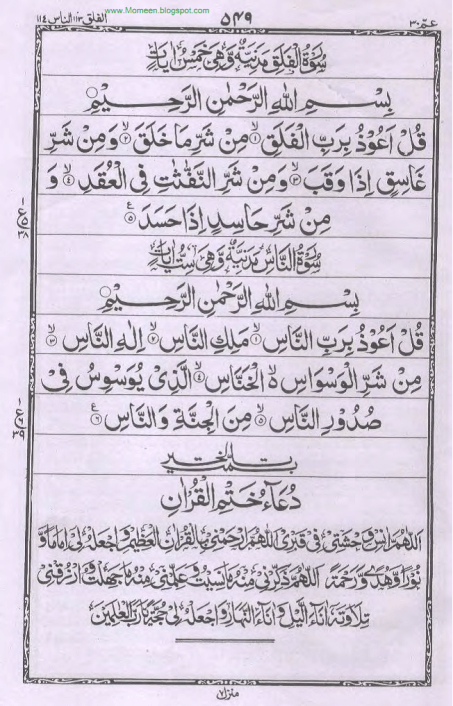 www.Momeen.blogspot.com
عـمّ ٣٠
٥٤٩
الفلق ١١٣ الناس ١١٤
سُوْرَةُ الْفَلَقِ مَدَنِيَّةٌ وَّهِىَ خَمْسُ اٰيَاتٍ
بِسْــــمِ اللّٰهِ الرَّحْمٰنِ الرَّحِـــيْمِ
قُلْ اَعُوْذُ بِرَبِّ الْفَلَقِ ١ مِنْ شَرِّ مَا خَلَقَ ٢ وَمِنْ شَرِّ
غَاسِقٍ اِذَا وَقَبَ ٣ وَمِنْ شَرِّ النَّفّٰثٰتِ فِى الْعُقَدِ ٤ وَ
مِنْ شَرِّ حَاسِدٍ اِذَا حَسَدَ ٥
سُوْرَةُ النَّاسِ مَدَنِيَّةٌ وَّهِىَ سِتُّ اٰيَاتٍ
بِسْــــمِ اللّٰهِ الرَّحْمٰنِ الرَّحِـــيْمِ
قُلْ اَعُوْذُ بِرَبِّ النَّاسِ ١ مَلِكِ النَّاسِ ٢ اِلٰهِ النَّاسِ ٣
مِنْ شَرِّ الْوَسْوَاسِ ۙ الْخَنَّاسِ ٤ الَّذِىْ يُوَسْوِسُ فِىْ
صُدُوْرِ النَّاسِ ٥ مِنَ الْجِنَّةِ وَالنَّاسِ ٦
دُعَآءُ خَتْمِ الْقُرْاٰنِ
اَللّٰهُمَّ اٰنِسْ وَحْشَتِىْ فِىْ قَبْرِىْ اَللّٰهُمَّ ارْحَمْنِىْ بِالْقُرْاٰنِ الْعَظِيْمِ وَاجْعَلْهُ لِىْ اِمَامًا وَّ
نُوْرًا وَّهُدًى وَّرَحْمَةً اَللّٰهُمَّ ذَكِّرْنِىْ مِنْهُ مَا نَسِيْتُ وَعَلِّمْنِىْ مِنْهُ مَا جَهِلْتُ وَارْزُقْنِىْ
تِلَاوَتَهٗ اٰنَآءَ الَّيْلِ وَاٰنَآءَ النَّهَارِ وَاجْعَلْهُ لِىْ حُجَّةً يَّا رَبَّ الْعٰلَمِيْنَ
منزل ٧